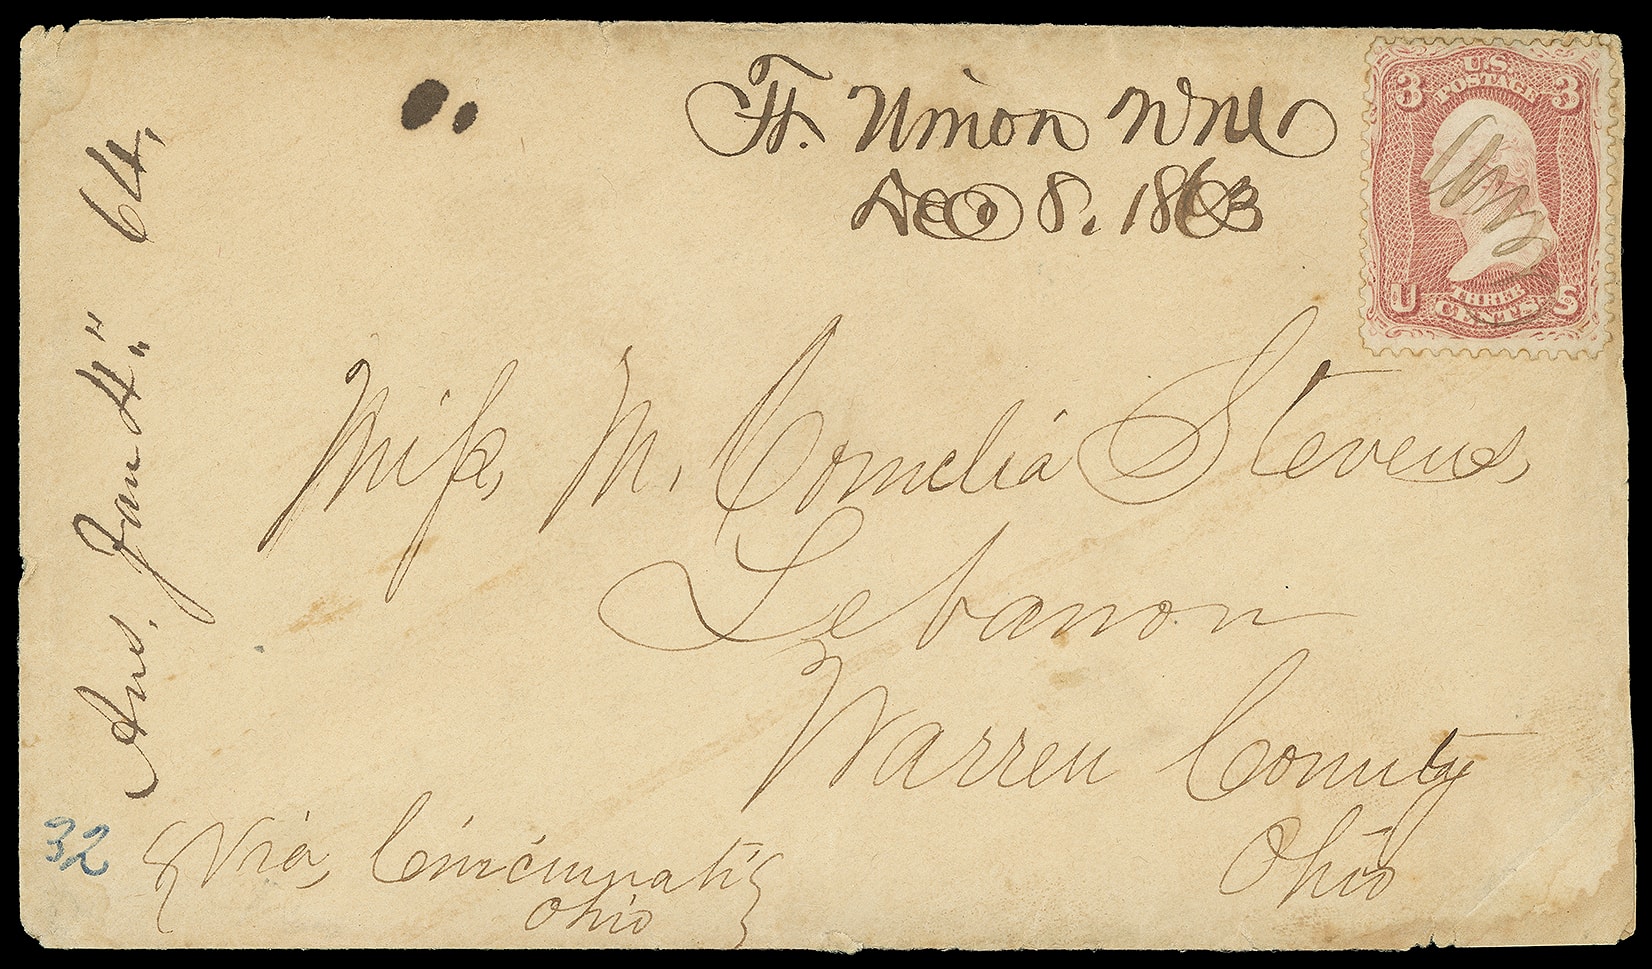 Ft. Union N M
Dec 8. 1863
3 U.S. POSTAGE 3
U THREE CENTS S
Ans. Jan 4" 64.
Miss, M. Cornelia Stevens,
Lebanon
Warren County
Ohio
32
Via, Cincinnati
Ohio